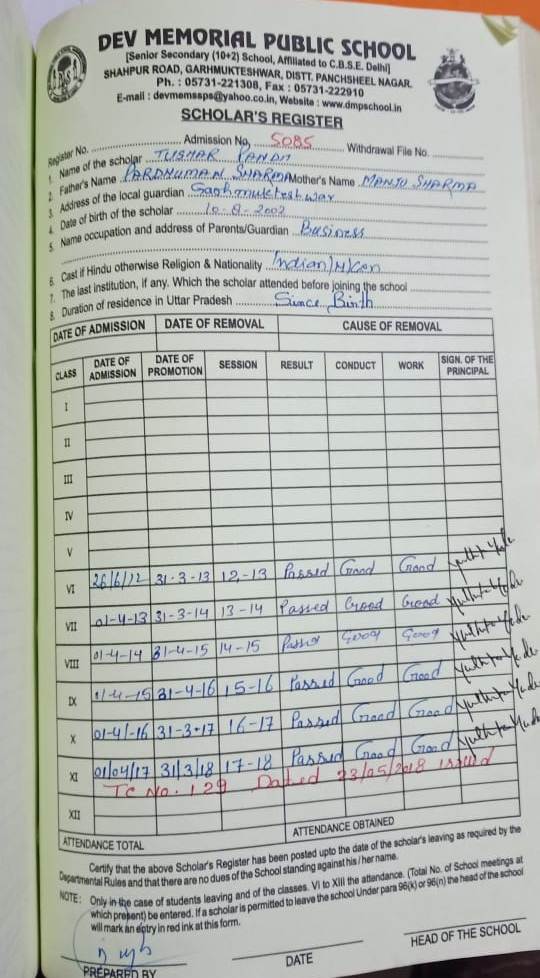 DEV MEMORIAL PUBLIC SCHOOL
[Senior Secondary (10+2) School, Affiliated to C.B.S.E. Delhi]
SHAHPUR ROAD, GARHMUKTESHWAR, DISTT. PANCHSHEEL NAGAR.
Ph. : 05731-221308, Fax : 05731-222910
E-mail : devmemssps@yahoo.co.in, Website : www.dmpschool.in
SCHOLAR'S REGISTER
Register No. Admission No. 5085 Withdrawal File No.
1. Name of the scholar TUSHAR PANDIT
2. Father's Name PARDHUMAN SHARMA Mother's Name MANJU SHARMA
3. Address of the local guardian Garhmukteshwar
4. Date of birth of the scholar 10-8-2002
5. Name occupation and address of Parents/Guardian Business
6. Cast if Hindu otherwise Religion & Nationality Indian/H/Gen
7. The last institution, if any. Which the scholar attended before joining the school
8. Duration of residence in Uttar Pradesh Since Birth
DATE OF ADMISSION DATE OF REMOVAL CAUSE OF REMOVAL
CLASS DATE OF ADMISSION DATE OF PROMOTION SESSION RESULT CONDUCT WORK SIGN. OF THE PRINCIPAL
I
II
III
IV
V
VI 26/6/12 31-3-13 12-13 Passed Good Good
VII 01-4-13 31-3-14 13-14 Passed Good Good
VIII 01-4-14 31-4-15 14-15 Passed Good Good
IX 1/-4-15 31-4-16 15-16 Passed Good Good
X 01-4/-16 31-3-17 16-17 Passed Good Good
XI 01/04/17 31/3/18 17-18 Passed Good Good
TC No. 129 Dated 23/05/2018 issued
XII
ATTENDANCE TOTAL ATTENDANCE OBTAINED
Certify that the above Scholar's Register has been posted upto the date of the scholar's leaving as required by the
Departmental Rules and that there are no dues of the School standing against his / her name.
NOTE : Only in the case of students leaving and of the classes. VI to XIII the attendance. (Total No. of School meetings at
which present) be entered. If a scholar is permitted to leave the school Under para 96(k) or 96(n) the head of the school
will mark an entry in red ink at this form.
PREPARED BY DATE HEAD OF THE SCHOOL